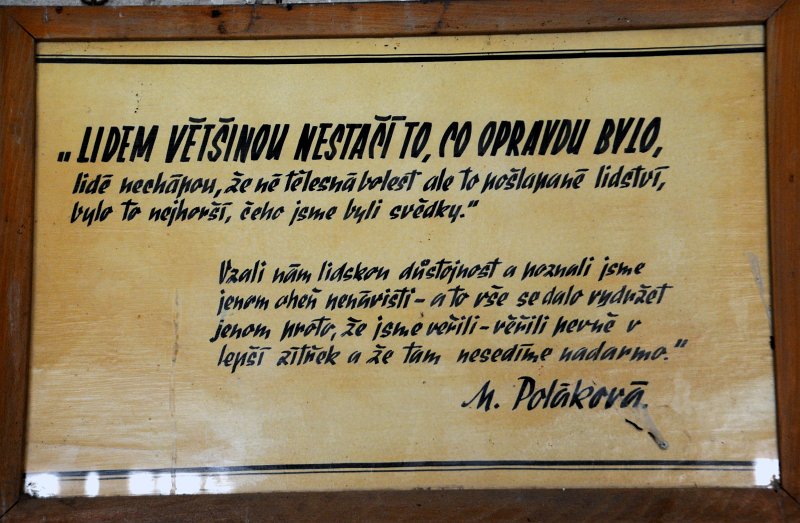 „LIDEM VĚTŠINOU NESTAČÍ TO, CO OPRAVDU BYLO,
lidé nechápou, že né tělesná bolest ale to pošlapané lidství,
bylo to nejhorší, čeho jsme byli svědky."
Vzali nám lidskou důstojnost a poznali jsme
jenom oheň nenávisti - a to vše se dalo vydržet
jenom proto, že jsme věřili - věřili pevně v
lepší zítřek a že tam nesedíme nadarmo."
M. Poláková.